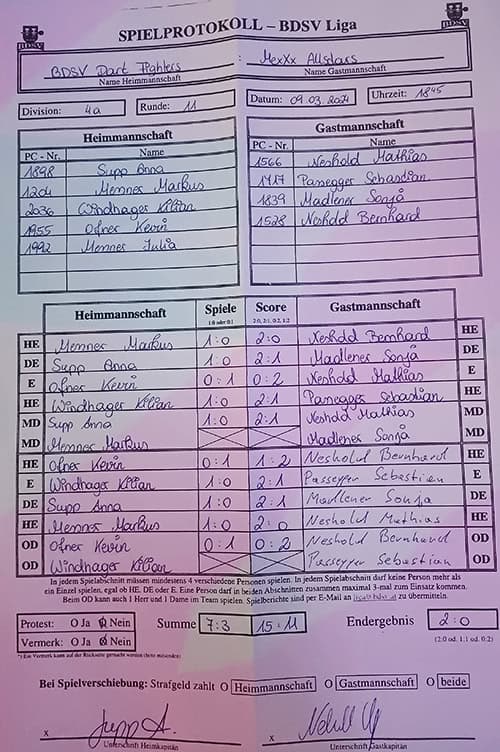 SPIELPROTOKOLL – BDSV Liga
BDSV BDSV
BDSV Dart Fighters : MexXx Allstars
Name Heimmannschaft Name Gastmannschaft
Division: 4a Runde: 11 Datum: 09.03.2024 Uhrzeit: 18 45
Heimmannschaft Gastmannschaft
PC - Nr. Name PC - Nr. Name
1898 Supp Anna 1566 Neshold Mathias
1201 Memmer Markus 1717 Passegger Sebastian
2036 Windhager Kilian 1839 Madlener Sonja
1955 Ofner Kevin 1528 Neshold Bernhard
1992 Memmer Julia
Heimmannschaft Spiele Score Gastmannschaft
1:0 oder 0:1 2:0, 2:1, 0:2, 1:2
HE Memmer Markus 1:0 2:0 Neshold Bernhard HE
DE Supp Anna 1:0 2:1 Madlener Sonja DE
E Ofner Kevin 0:1 0:2 Neshold Mathias E
HE Windhager Kilian 1:0 2:1 Passegger Sebastian HE
MD Supp Anna 1:0 2:1 Neshold Mathias MD
MD Memmer Markus Madlener Sonja MD
HE Ofner Kevin 0:1 1:2 Neshold Bernhard HE
E Windhager Kilian 1:0 2:1 Passegger Sebastian E
DE Supp Anna 1:0 2:1 Madlener Sonja DE
HE Memmer Markus 1:0 2:0 Neshold Mathias HE
OD Ofner Kevin 0:1 0:2 Neshold Bernhard OD
OD Windhager Kilian Passegger Sebastian OD
In jedem Spielabschnitt müssen mindestens 4 verschiedene Personen spielen. In jedem Spielabschnitt darf keine Person mehr als
ein Einzel spielen, egal ob HE, DE oder E. Eine Person darf in beiden Abschnitten zusammen maximal 3-mal zum Einsatz kommen.
Beim OD kann auch 1 Herr und 1 Dame im Team spielen. Spielberichte sind per E-Mail an zu übermitteln.
Protest: O Ja O Nein Summe 7:3 15:11 Endergebnis 2:0
Vermerk: O Ja O Nein (2:0 od. 1:1 od. 0:2)
*) Ein Vermerk kann auf der Rückseite gemacht werden (bitte mitsenden)
Bei Spielverschiebung: Strafgeld zahlt O Heimmannschaft O Gastmannschaft O beide
x Supp A. x
Unterschrift Heimkapitän Unterschrift Gastkapitän